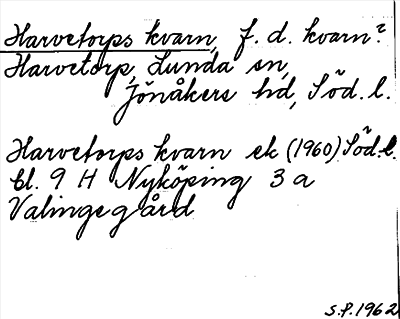 Harvetorps kvarn, f. d. kvarn?
Harvetorp, Lunda sn,
Jönåkers hd, Söd. l.
Harvetorps kvarn ek (1960) Söd. l.
bl. 9 H Nyköping 3 a
Valinge gård
S.P. 1962